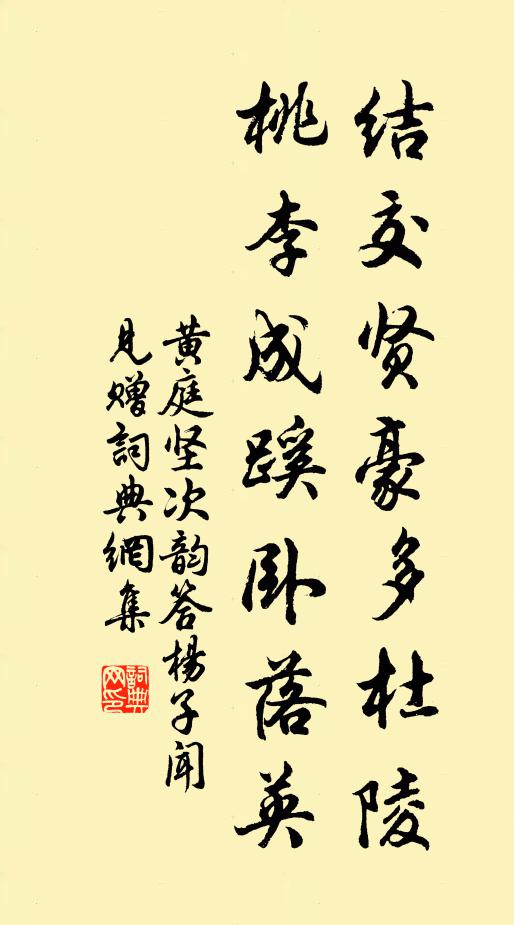 结交贤豪多杜陵
桃李成蹊卧落英
黄庭坚次韵答杨子闻
见赠词典網集
詞典
网印